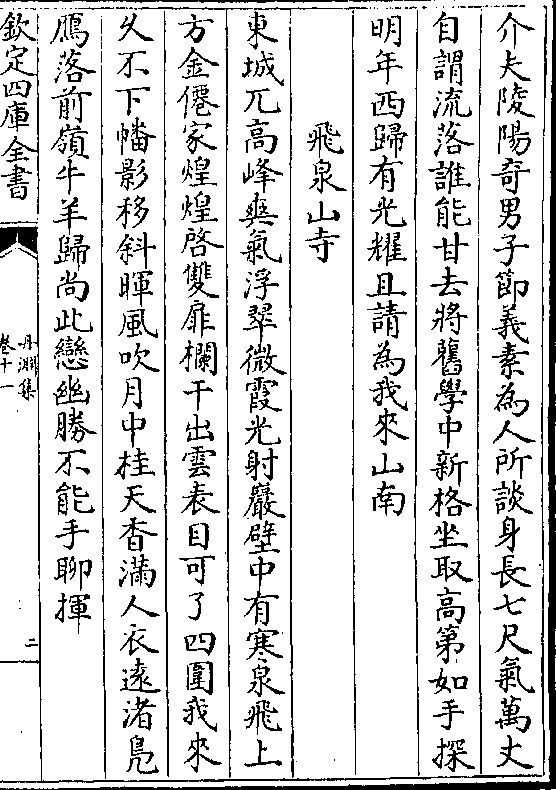 介夫陵陽奇男子節義素為人所談身長七尺氣萬丈
自謂流落誰能甘去將舊學中新格坐取高第如手探
明年西歸有光耀且請為我來山南
飛泉山寺
東城兀高峰爽氣浮翠微霞光射巖壁中有寒泉飛上
方金僊家煌煌啓雙扉欄干出雲表目可了四圍我來
久不下幡影移斜暉風吹月中桂天香滿人衣遠渚鳬
鴈落前嶺牛羊歸尚此戀幽勝不能手聊揮
欽定四庫全書
丹淵集
卷十一
二